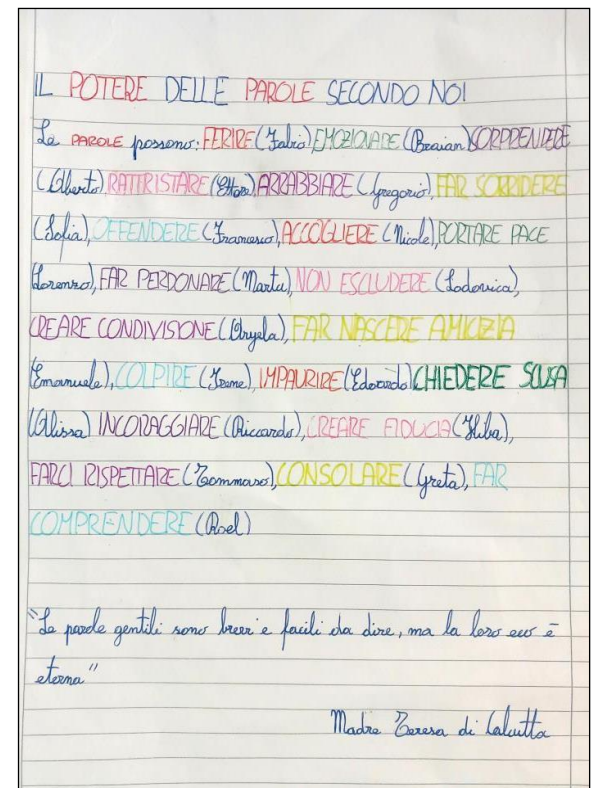 IL POTERE DELLE PAROLE SECONDO NOI
Le PAROLE possono: FERIRE (Fabio), EMOZIONARE (Braian) SORPRENDERE
(Alberto), RATTRISTARE (Ettore), ARRABBIARE (Gregorio), FAR SORRIDERE
(Sofia), OFFENDERE (Francesco), ACCOGLIERE (Nicole), PORTARE PACE
(Lorenzo), FAR PERDONARE (Marta), NON ESCLUDERE (Lodovica),
CREARE CONDIVISIONE (Anyela), FAR NASCERE AMICIZIA
(Emanuele), COLPIRE (Irene), IMPAURIRE (Edoardo) CHIEDERE SCUSA
(Alissa) INCORAGGIARE (Riccardo), CREARE FIDUCIA (Hiba),
FARCI RISPETTARE (Tommaso), CONSOLARE (Greta), FAR
COMPRENDERE (Roel)
"Le parole gentili sono brevi e facili da dire, ma la loro eco è
eterna"
Madre Teresa di Calcutta